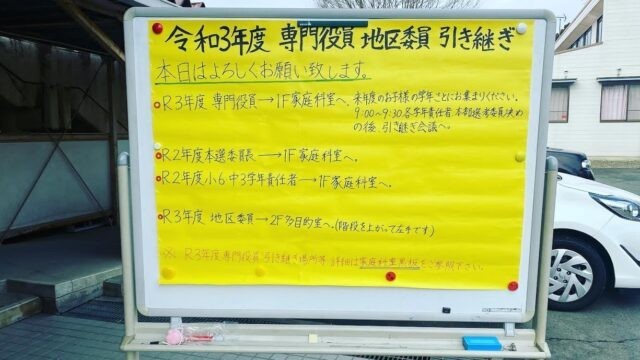 令和3年度 専門役員 地区委員 引き継ぎ
本日はよろしくお願い致します。
R3年度 専門役員→1F家庭科室へ。
来年度のお子様の学年ごとにお集まりください。
9:00〜9:30各学年責任者、本部選考委員決め
の後、引き継ぎ会議へ。
R2年度本選委員長→1F家庭科室へ。
R2年度小6中3学年責任者→1F家庭科室へ。
R3年度 地区委員→2F多目的室へ。(階段を上がって左手です)
※ R3年度専門役員 引き継ぎ場所等 詳細は家庭科室黒板をご参照下さい。